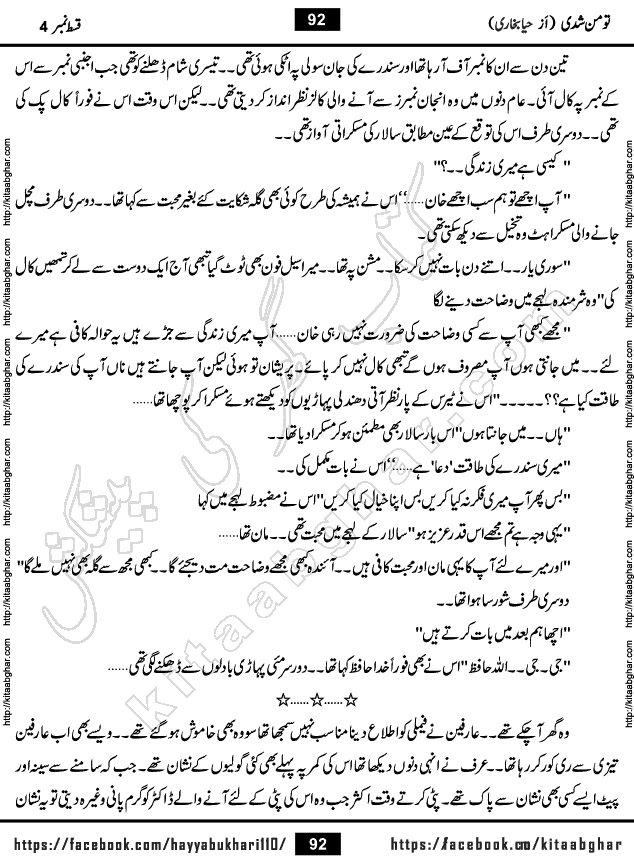 تو من شدی (از حیا بخاری)
92
قسط نمبر 4
تین دن سے ان کا نمبر آف آ رہا تھا اور سندرے کی جان سولی پہ اٹکی ہوئی تھی۔۔تیسری شام ڈھلنے کو تھی جب اجنبی نمبر سے اس
کے نمبر پہ کال آئی۔ عام دنوں میں وہ انجان نمبرز سے آنے والی کالز نظر انداز کر دیتی تھی۔۔لیکن اس وقت اس نے فوراً کال پک کی
تھی۔۔دوسری طرف اس کی توقع کے عین مطابق سالار کی مسکراتی آواز تھی۔۔
" کیسی ہے میری زندگی۔۔؟"
"آپ اچھے تو ہم سب اچھے خان......‘‘اس نے ہمیشہ کی طرح کوئی بھی گلہ شکایت کئے بغیر محبت سے کہا تھا۔۔دوسری طرف مچل
جانے والی مسکراہٹ وہ تخیل سے دیکھ سکتی تھی۔
"سوری یار۔۔اتنے دن بات نہیں کر سکا۔۔مشن پہ تھا۔۔میرا سیل فون بھی ٹوٹ گیا تبھی آج ایک دوست سے لے کر تمھیں کال
کی"وہ شرمندہ لہجے میں وضاحت دینے لگا
"مجھے کبھی آپ سے کسی وضاحت کی ضرورت نہیں رہی خان......آپ میری زندگی سے جڑے ہیں یہ حوالہ کافی ہے میرے
لئے۔۔میں جانتی ہوں آپ مصروف ہوں گے تبھی کال نہیں کر پائے۔پریشان تو ہوئی لیکن آپ جانتے ہیں ناں آپ کی سندرے کی
طاقت کیا ہے؟؟۔۔۔۔۔"اس نے ٹیرس کے پار نظر آتی دھندلی پہاڑیوں کو دیکھتے ہوئے مسکرا کر پوچھا تھا......
"ہاں۔۔میں جانتا ہوں"اس بار سالار بھی مطمئن ہو کر مسکرا دیا تھا۔۔
"میری سندرے کی طاقت 'دعا' ہے.....‘‘اس نے بات مکمل کی۔۔
"بس پھر آپ میری فکر نہ کیا کریں بس اپنا خیال کیا کریں"اس نے مضبوط لہجے میں کہا
"یہی وجہ ہے تم مجھے اس قدر عزیز ہو"سالار کے لہجے میں محبت تھی۔۔مان تھا......
"اور میرے لئے آپ کا یہی مان اور محبت کافی ہیں۔۔آئندہ کبھی مجھے وضاحت مت دیجئے گا۔۔کبھی مجھ سے گلہ بھی نہیں ملے گا"
دوسری طرف شور سا ہوا تھا۔۔
"اچھا ہم بعد میں بات کرتے ہیں"
"جی۔جی۔۔اللہ حافظ"اس نے بھی فوراً خدا حافظ کہا تھا۔۔دور سرمئی پہاڑی بادلوں سے ڈھکنے لگی تھی......
☆......☆......☆
وہ گھر آ چکے تھے۔۔عارفین نے فیملی کو اطلاع دینا مناسب نہیں سمجھا تھا سو وہ بھی خاموش ہو گئے تھے۔۔ویسے بھی اب عارفین
تیزی سے ری کور کر رہا تھا۔۔عرف نے انہی دنوں دیکھا تھا اس کی کمر پہ پہلے بھی کئی گولیوں کے نشان تھے۔ جب کہ سامنے سے سینہ اور
پیٹ ایسے کسی بھی نشان سے پاک تھے۔پٹی کرتے وقت اکثر جب وہ اس کی پٹی کے لئے آنے والے ڈاکٹر کو گرم پانی وغیرہ دیتی تو یہ نشان
کتاب گھر کی پیشکش
kitaabghar.com
http://kitaabghar.com http://kitaabghar.com http://kitaabghar.com http://kitaabghar.com http://kitaabghar.com http://kitaabghar.com
http://kitaabghar.com http://kitaabghar.com http://kitaabghar.com http://kitaabghar.com http://kitaabghar.com http://kitaabghar.com
https://facebook.com/hayyabukhari110/
92
https://facebook.com/kitaabghar